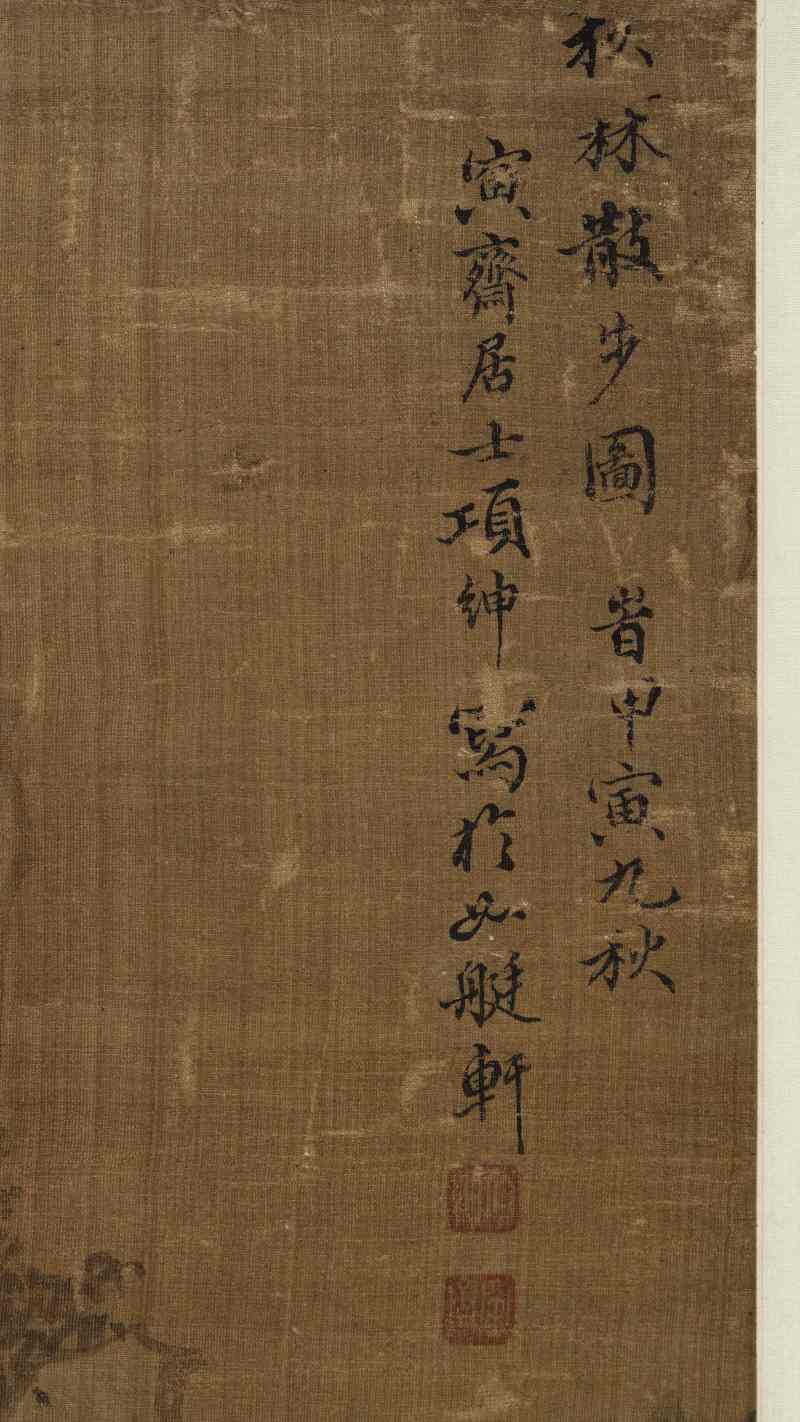 秋林散步圖 旹甲寅九秋
寅齋居士項紳寫於如艇軒